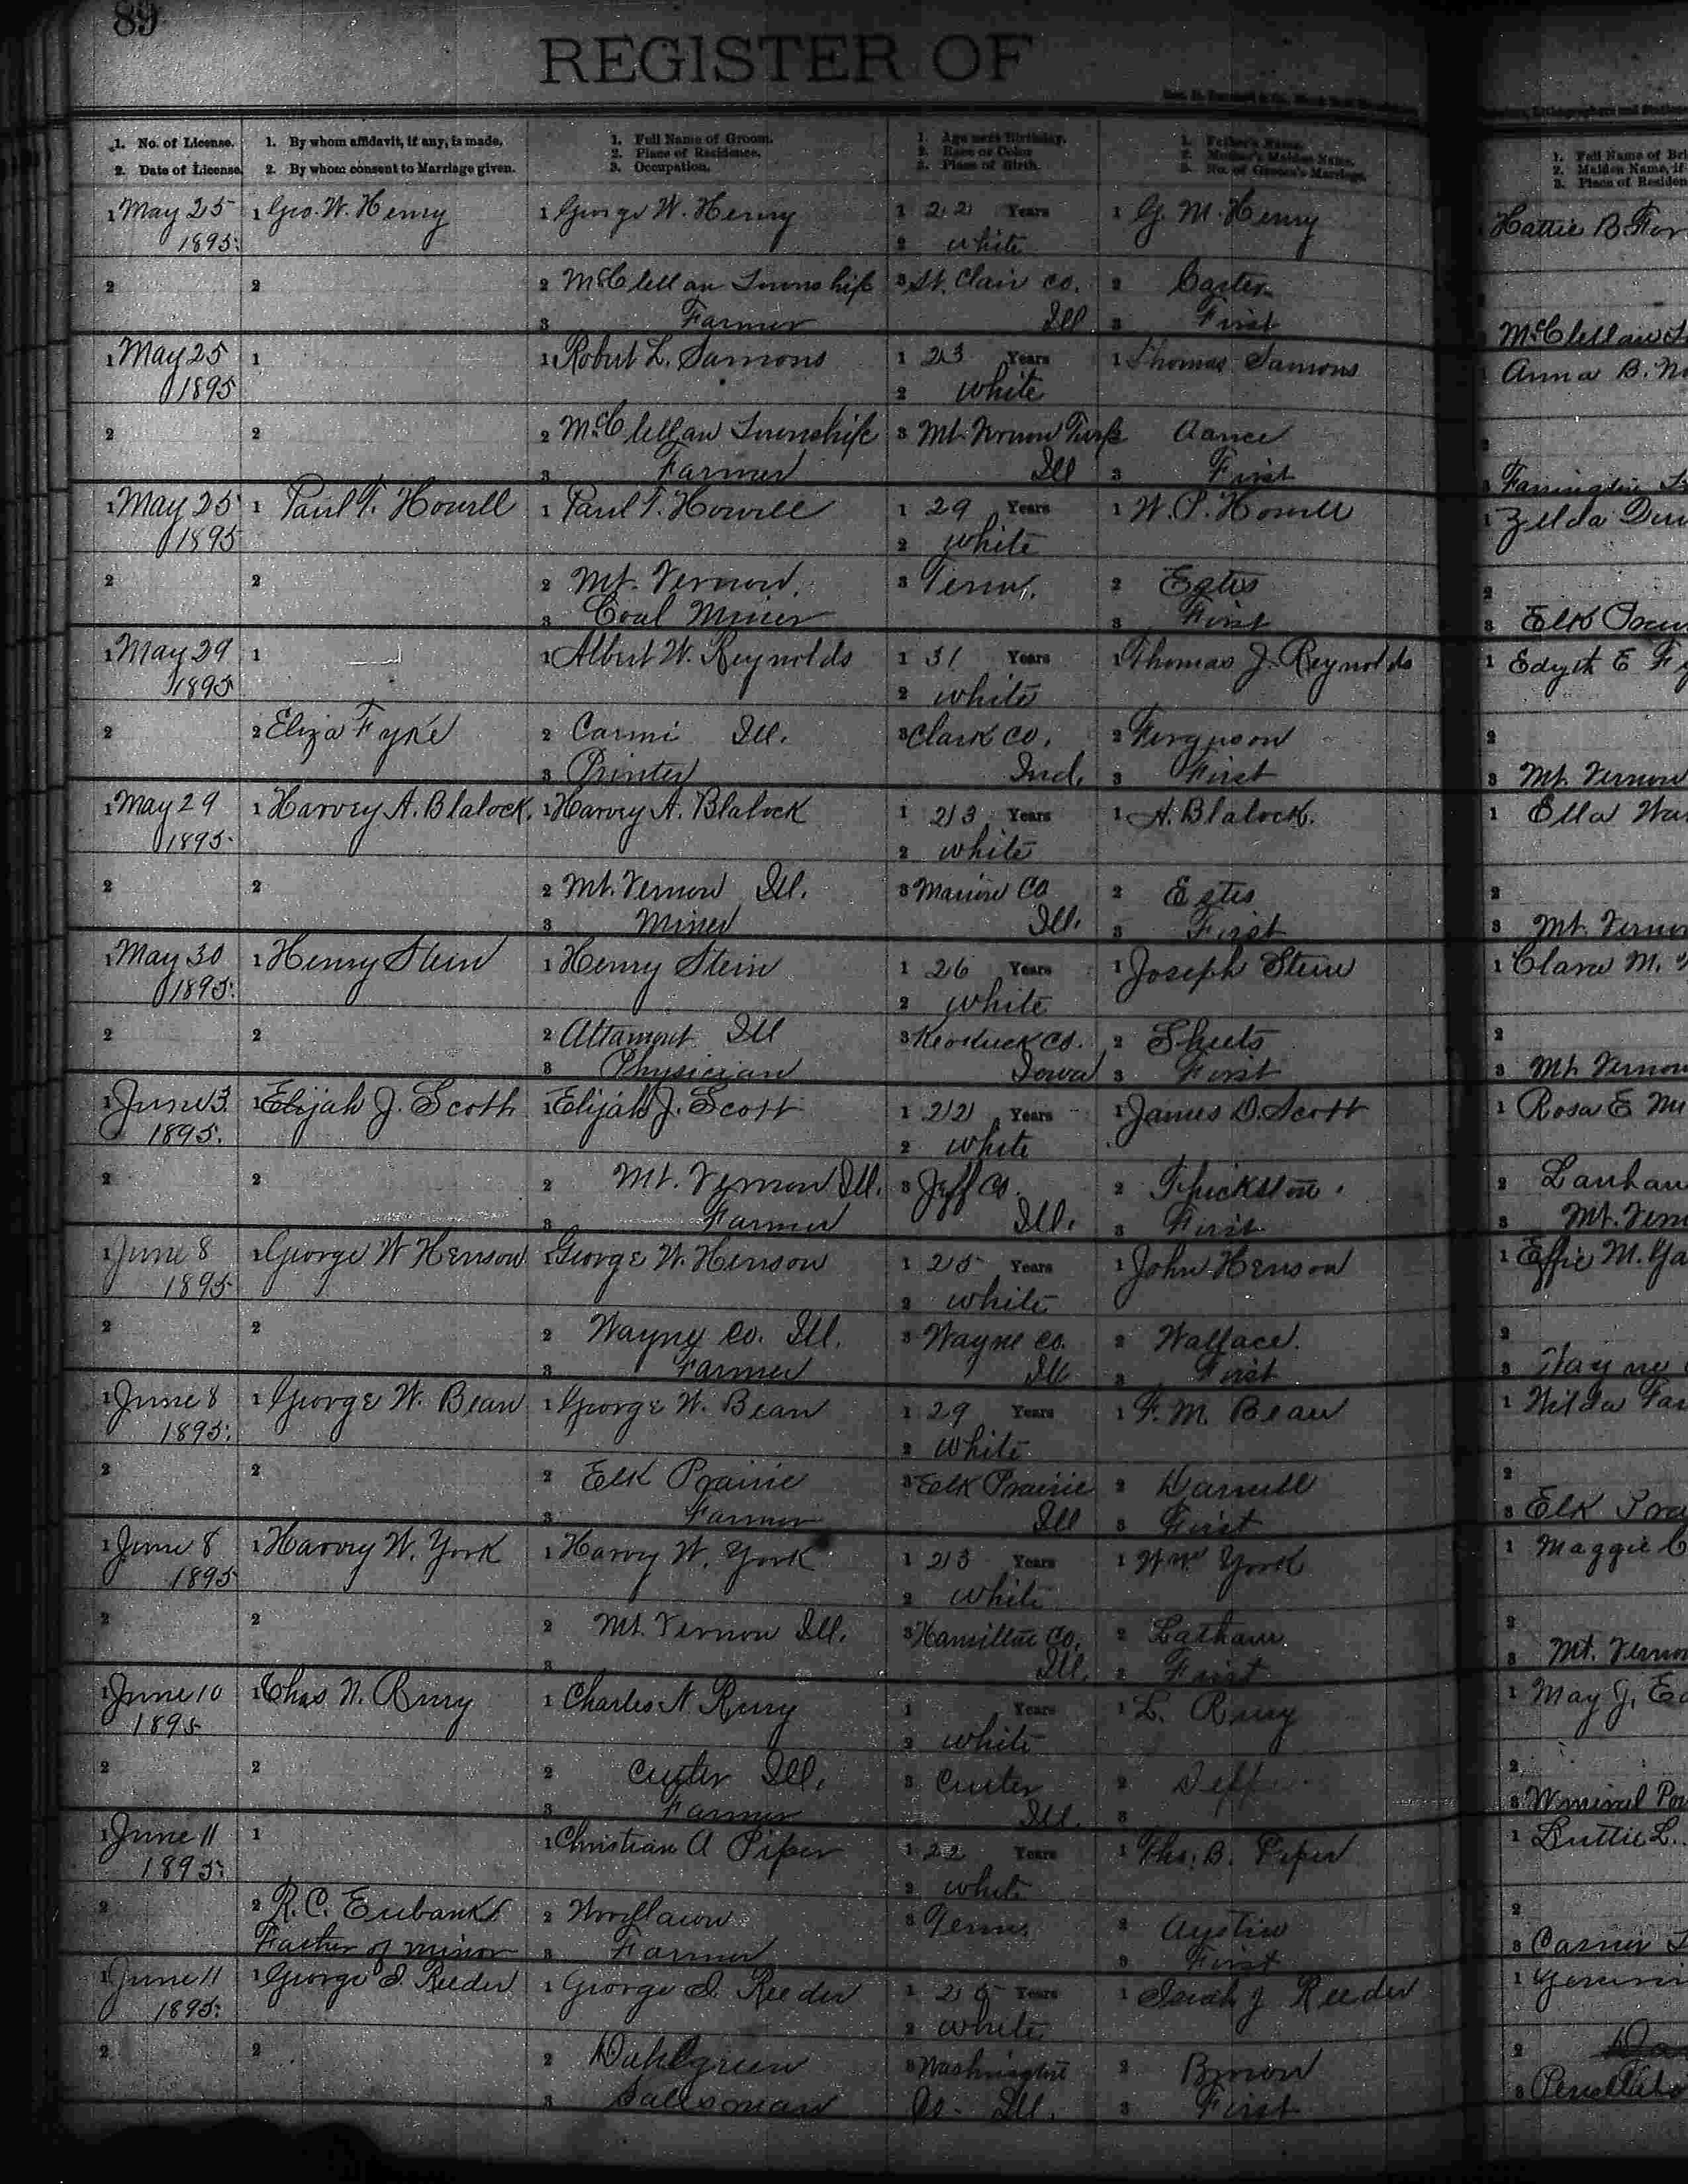 89
REGISTER OF
1. No. of License. 1. By whom affidavit, if any, is made. 1. Full Name of Groom. 1. Age next Birthday. 1. Father's Name. 1. Full Name of Bri
2. Date of License. 2. By whom consent to Marriage given. 2. Place of Residence. 2. Race or Color 2. Mother's Maiden Name. 2. Maiden Name, if
3. Occupation. 3. Place of Birth. 3. No. of Groom's Marriage. 3. Place of Residen
1 May 25 1 Geo. W. Henry 1 George W. Henry 1 22 Years 1 G. M. Henry Hattie B. For
1895. 2 white
2 2 2 McClellan Township 3 St. Clair co. 2 Carter
3 Farmer Ill 3 First McClellan
1 May 25 1 1 Robert L. Samons 1 23 Years 1 Thomas Samons Anna B.
1895 2 white
2 2 2 McClellan Township 3 Mt. Vernon Twp
3 Farmer Ill 3 First
1 May 25 1 Paul T. Howell 1 Paul T. Howell 1 29 Years 1 W. P. Howell 1 Zelda
1895 2 white
2 2 2 Mt. Vernon. 3 Tenn. 2 Estes 2
3 Coal Miner 3 First 3 Elk
1 May 29 1 1 Albert W. Reynolds 1 31 Years 1 Thomas J. Reynolds 1 Edyth E Fy
1895 2 white
2 2 Eliza Fyke 2 Carmi Ill. 3 Clark co. 2 Ferguson 2
3 Printer Ind. 3 First 3 Mt. Vernon
1 May 29 1 Harvey A. Blalock. 1 Harvey A. Blalock 1 23 Years 1 A. Blalock. 1 Ella
1895. 2 white
2 2 2 Mt. Vernon Ill. 3 Marion Co 2 Estes 2
3 Miner Ill. 3 First 3 Mt. Vernon
1 May 30 1 Henry Stein 1 Henry Stein 1 26 Years 1 Joseph Stein 1 Clara M.
1895. 2 white
2 2 2 Altamont Ill 3 Keokuck co. 2 Sheets 2
3 Physician Iowa 3 First 3 Mt. Vernon
1 June 3 1 Elijah J. Scott 1 Elijah J. Scott 1 22 Years 1 James D. Scott 1 Rosa E
1895. 2 white
2 2 2 Mt. Vernon Ill. 3 Jeff Co. 2 2 Lanham
3 Farmer Ill. 3 First 3 Mt. Vern
1 June 8 1 George W Henson 1 George W. Henson 1 25 Years 1 John Henson 1 Effie M.
1895 2 white
2 2 2 Wayne Co. Ill. 3 Wayne co. 2 Wallace. 2
3 Farmer Ill 3 First 3 Wayne
1 June 8 1 George W. Bean 1 George W. Bean 1 29 Years 1 F. M. Bean 1
1895. 2 white
2 2 2 Elk Prairie 3 Elk Prairie 2 Darnell 2
3 Farmer Ill 3 First 3 Elk Pra
1 June 8 1 Harvy W. York 1 Harvy W. York 1 23 Years 1 Wm York 1 Maggie C
1895 2 white
2 2 2 Mt. Vernon Ill. 3 Hamilton Co. 2 Latham 2
3 Ill. 3 First 3 Mt. Vernon
1 June 10 1 Chas N. 1 Charles N. 1 Years 1 L. 1 May J.
1895 2 white
2 2 2 Ill. 3 2 2
3 Farmer Ill. 3 3
1 June 11 1 1 Christian A Piper 1 22 Years 1 Tho. B. Piper 1 L.
1895. 2 white
2 2 R. C. Eubanks 2 Woodlawn 3 Tenn. 2 Austin 2
Father of minor 3 Farmer 3 First 3
1 June 11 1 George I. Reeder 1 George I. Reeder 1 Years 1 Isiah J Reeder 1
1895. 2 white
2 2 2 Dahlgreen 3 Washington 2 Brown 2
3 Salesman Co. Ill. 3 First 3